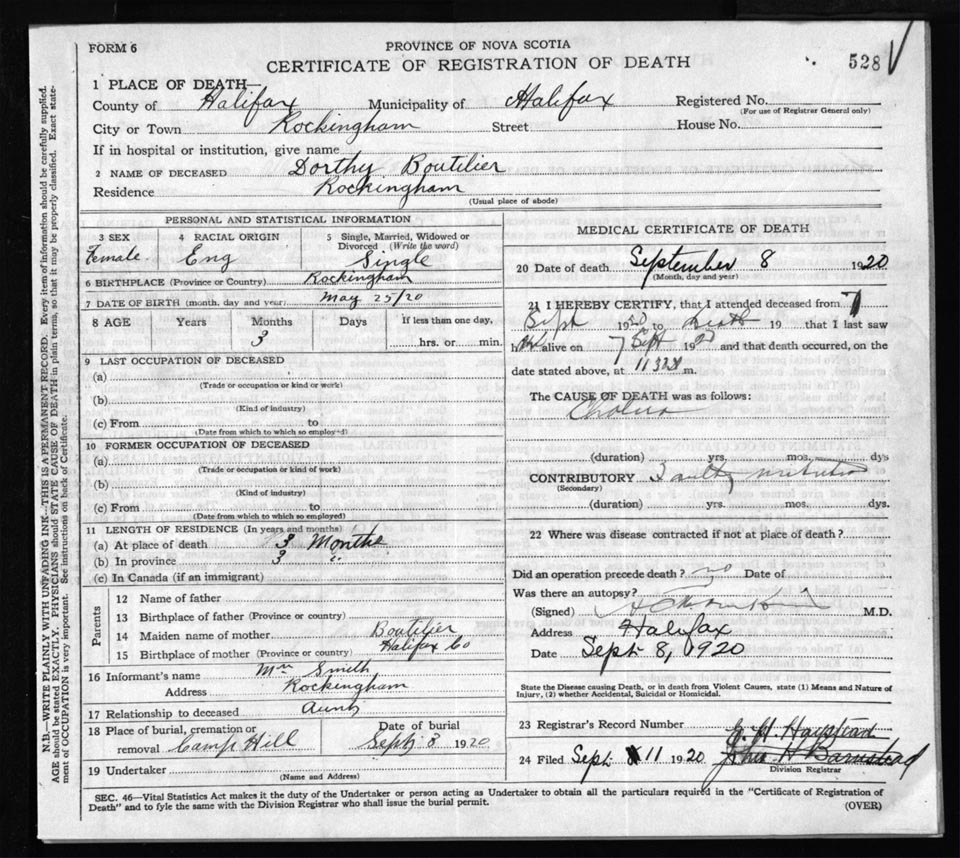 FORM 6
PROVINCE OF NOVA SCOTIA
CERTIFICATE OF REGISTRATION OF DEATH
528
1 PLACE OF DEATH—
County of Halifax Municipality of Halifax Registered No.
(For use of Registrar General only)
City or Town Rockingham Street House No.
If in hospital or institution, give name
2 NAME OF DECEASED Dorthy Boutilier
Residence Rockingham
(Usual place of abode)
PERSONAL AND STATISTICAL INFORMATION
3 SEX 4 RACIAL ORIGIN 5 Single, Married, Widowed or Divorced (Write the word)
Female Eng Single
6 BIRTHPLACE (Province or Country) Rockingham
7 DATE OF BIRTH (month, day and year) May 25/20
8 AGE Years Months Days If less than one day,
3 hrs. or min.
9 LAST OCCUPATION OF DECEASED
(a)
(Trade or occupation or kind or work)
(b)
(Kind of industry)
(c) From to
(Date from which to which so employed)
10 FORMER OCCUPATION OF DECEASED
(a)
(Trade or occupation or kind of work)
(b)
(Kind of industry)
(c) From to
(Date from which to which so employed)
11 LENGTH OF RESIDENCE (In years and months)
(a) At place of death 3 Months
(b) In province 3 "
(c) In Canada (if an immigrant)
Parents
12 Name of father
13 Birthplace of father (Province or country)
14 Maiden name of mother Boutilier
15 Birthplace of mother (Province or country) Halifax Co
16 Informant's name Mrs Smith
Address Rockingham
17 Relationship to deceased Aunt
18 Place of burial, cremation or removal Camp Hill
Date of burial
Sept 8 1920
19 Undertaker
(Name and Address)
MEDICAL CERTIFICATE OF DEATH
20 Date of death September 8 1920
(Month, day and year)
21 I HEREBY CERTIFY, that I attended deceased from 7
Sept 1920 to Death 19 that I last saw
h alive on 7 Sept 1920 and that death occurred, on the
date stated above, at m.
The CAUSE OF DEATH was as follows:
Cholera
(duration) yrs. mos. dys
CONTRIBUTORY Faulty nutrition
(Secondary)
(duration) yrs. mos. dys.
22 Where was disease contracted if not at place of death?
Did an operation precede death? no Date of
Was there an autopsy?
(Signed) M.D.
Address Halifax
Date Sept 8, 1920
State the Disease causing Death, or in death from Violent Causes, state (1) Means and Nature of
Injury, (2) whether Accidental, Suicidal or Homicidal.
23 Registrar's Record Number
24 Filed Sept 11 1920 John H Barnstead
Division Registrar
SEC. 46—Vital Statistics Act makes it the duty of the Undertaker or person acting as Undertaker to obtain all the particulars required in the "Certificate of Registration of
Death" and to fyle the same with the Division Registrar who shall issue the burial permit.
(OVER)
N.B.—WRITE PLAINLY WITH UNFADING INK—THIS IS A PERMANENT RECORD. Every item of information should be carefully supplied.
AGE should be stated EXACTLY. PHYSICIANS should STATE CAUSE OF DEATH in plain terms, so that it may be properly classified. Exact state-
ment of OCCUPATION is very important. See instructions on back of Certificate.